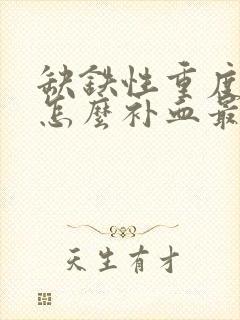 缺鉄性重度
怎麼补血最
天生有才